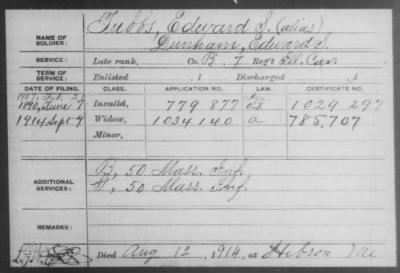 NAME OF SOLDIER: Tubbs, Edward S. (alias)
Dunham, Edward S.
SERVICE: Late rank, Co. B. 7 Regt Ill. Cav.
TERM OF SERVICE: Enlisted , 1 Discharged , 1
DATE OF FILING. CLASS. APPLICATION NO. LAW. CERTIFICATE NO.
1907, Feb. 27
1890, June 7 Invalid, 779 877 1029 297
1914 Sept 9 Widow, 1034 140 a 785,707
Minor,
ADDITIONAL SERVICES: B, 50 Mass. Inf.
50 Mass. Inf.
REMARKS:
Died Aug 12, 1914, at Hebron Me